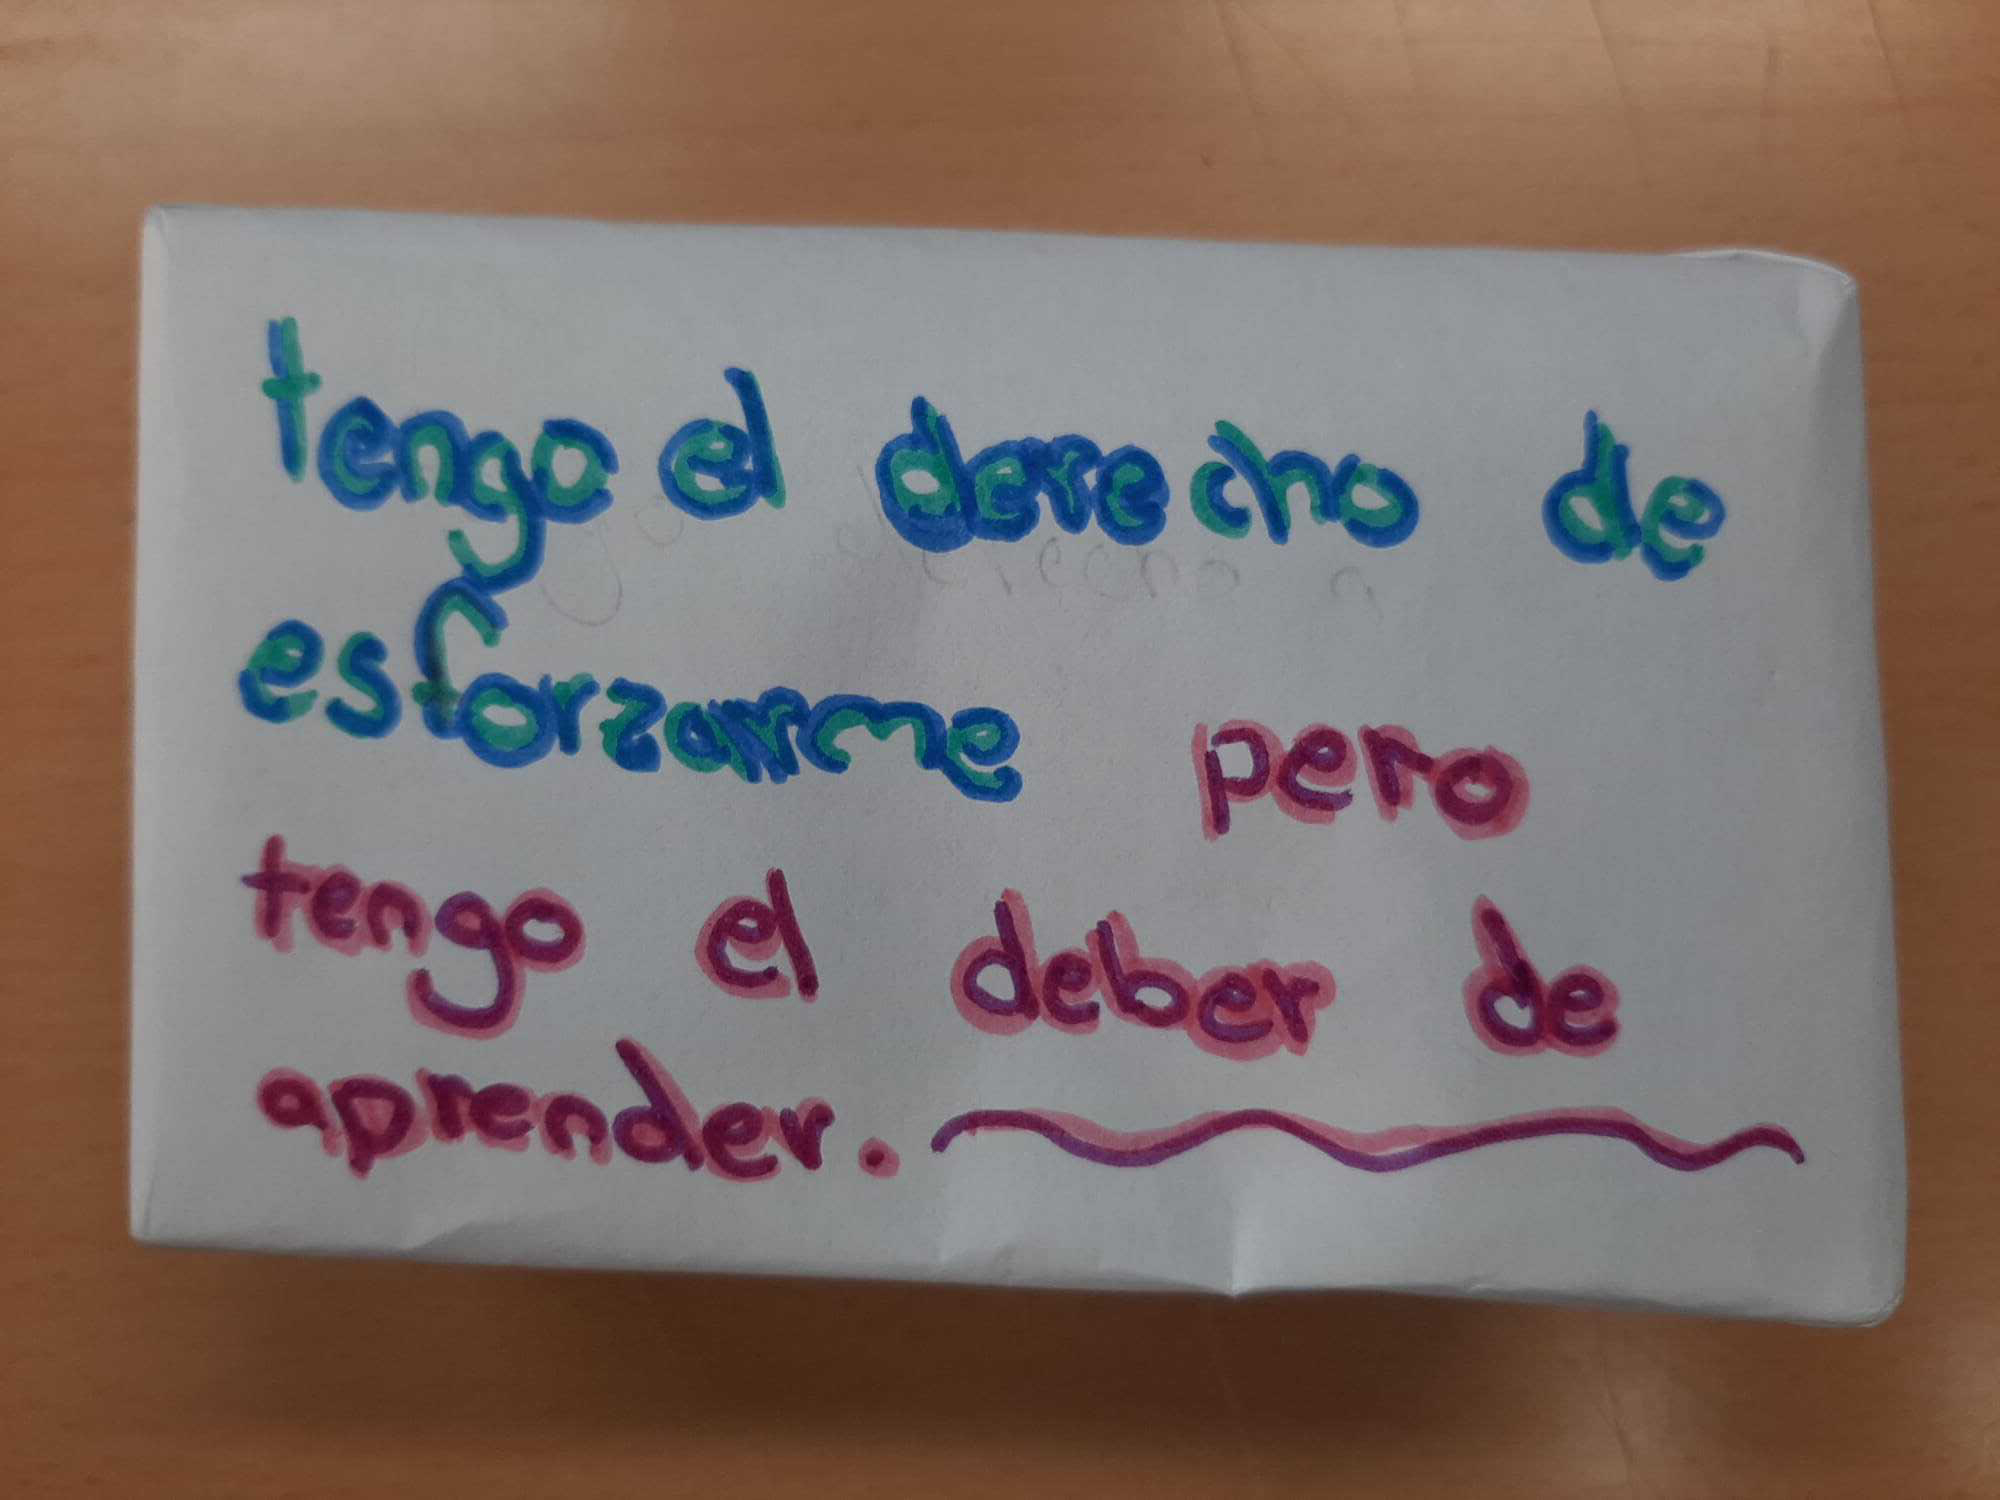 tengo el derecho de
esforzarme pero
tengo el deber de
aprender.